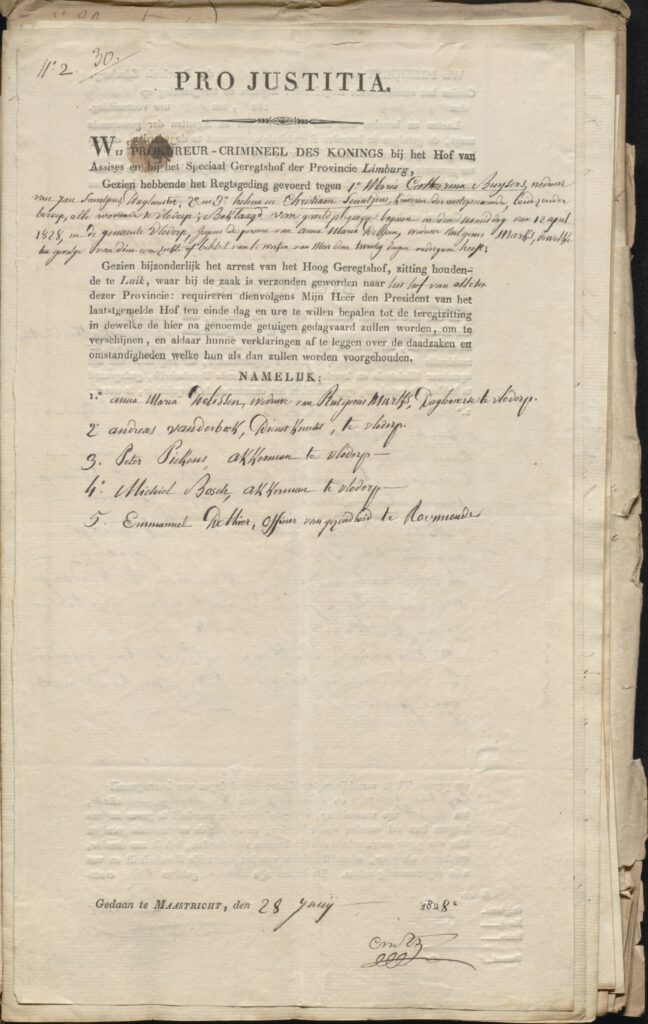 N.º 2. 30.
PRO JUSTITIA.
WIJ PROKUREUR-CRIMINEEL DES KONINGS bij het Hof van
Assises en bij het Speciaal Geregtshof der Provincie Limburg,
Gezien hebbende het Regtsgeding gevoerd tegen 1.º Maria Catharina Buysers, weduwe
van Jan 2º en 3º helena en Christiaan kinderen der eerstgenoemde, beide zonder
beroep, alle woonende te vlodorp; Beklaagd van gepleegd in den namiddag van 12 april
1828, in de gemeente vlodorp, jegens de persoon van anna Maria weduwe Rutgens Marks, dewelke
ten gevolge van dien eene ziekte of beletsel van te werken van meer dan twintig dagen ondergaan heeft;
Gezien bijzonderlijk het arrest van het Hoog Geregtshof, zitting houden-
de te Luik, waar bij de zaak is verzonden geworden naar het hof van assises
dezer Provincie: requireren dienvolgens Mijn Heer den President van het
laatstgemelde Hof ten einde dag en ure te willen bepalen tot de teregtzitting
in dewelke de hier na genoemde getuigen gedagvaard zullen worden, om te
verschijnen, en aldaar hunne verklaringen af te leggen over de daadzaken en
omstandigheden welke hun als dan zullen worden voorgehouden.
NAMELIJK:
1.º anna Maria Delissen, weduwe van Rutgens Marks, te vlodorp.
2 andreas vanderbeek, Dienstknecht, te vlodorp.
3. Peter Pickens, akkerman te vlodorp
4.º Michiel Bosch, akkerman te vlodorp
5. Emmanuel Dethier, officier van gezondheid te Roermonde
Gedaan te MAASTRICHT, den 28 Juny 1828.